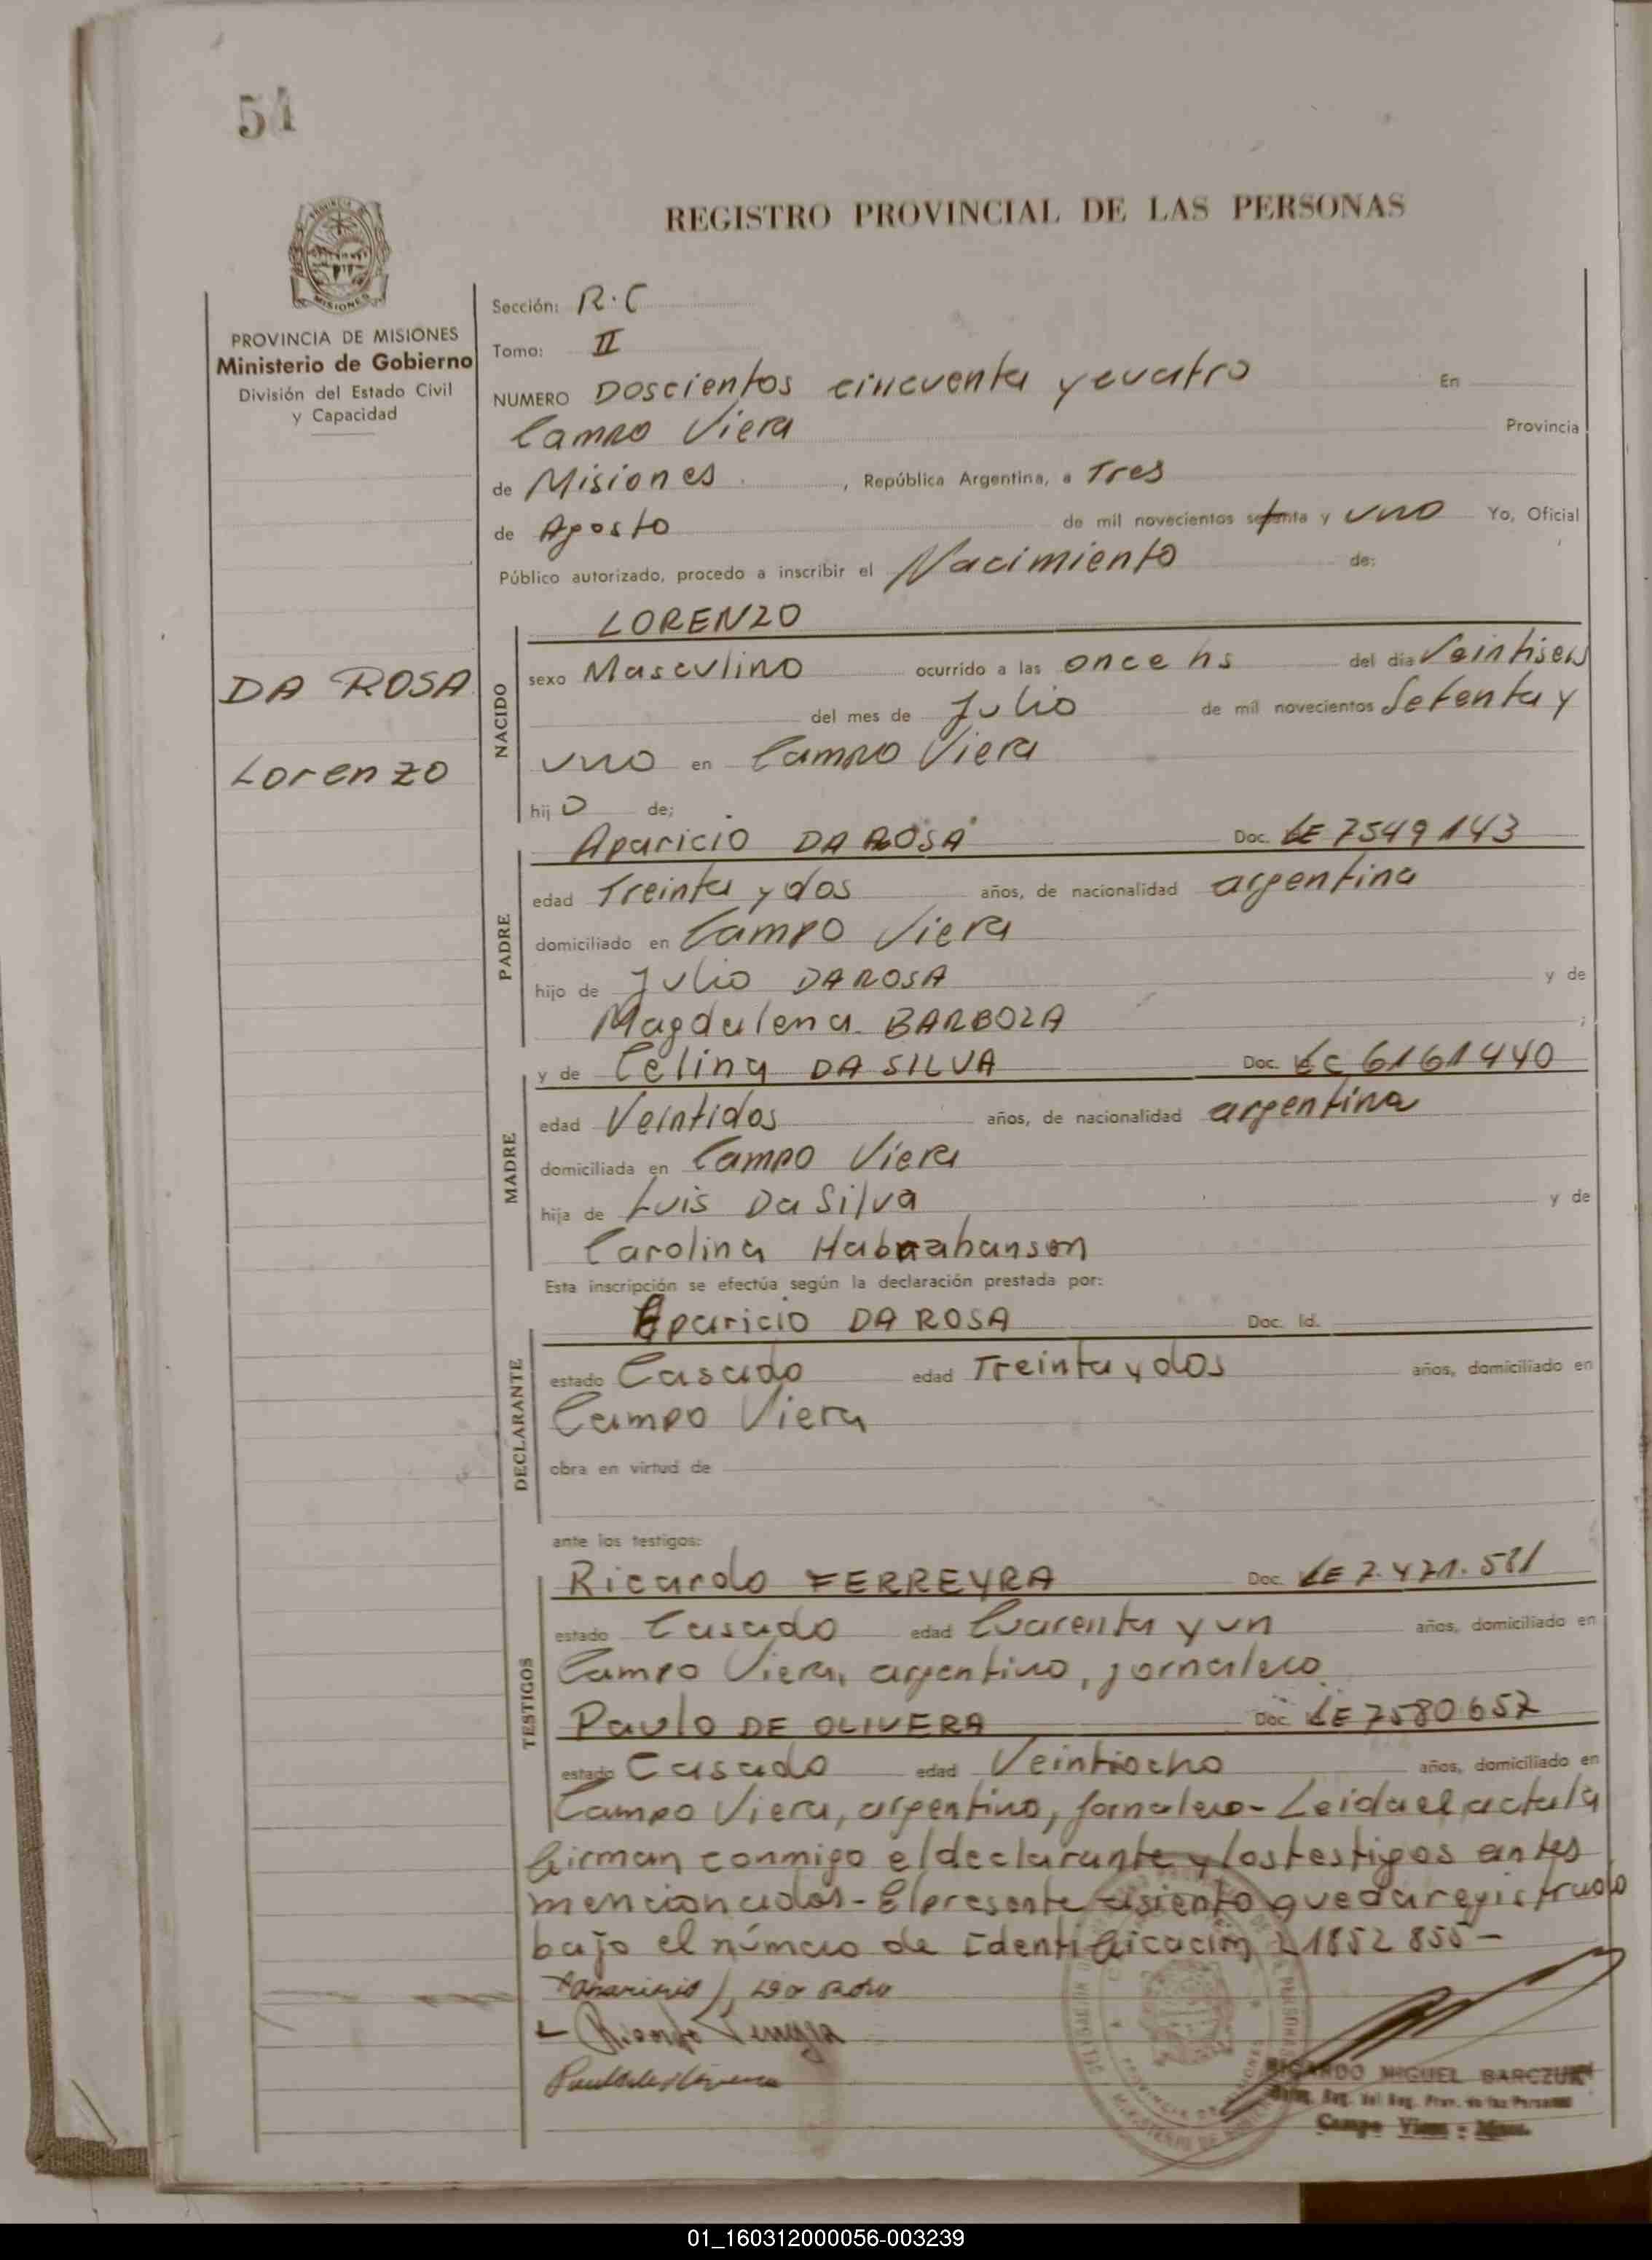 54
REGISTRO PROVINCIAL DE LAS PERSONAS
PROVINCIA DE MISIONES
Ministerio de Gobierno
División del Estado Civil
y Capacidad
Sección: R.C
Tomo: II
NUMERO Doscientos cincuenta y cuatro En
Campo Viera Provincia
de Misiones, República Argentina, a Tres
de Agosto de mil novecientos setenta y uno Yo, Oficial
Público autorizado, procedo a inscribir el Nacimiento de:
DA ROSA
Lorenzo
NACIDO
LORENZO
sexo Masculino ocurrido a las once hs del día Veintiseis
del mes de Julio de mil novecientos Setenta y
uno en Campo Viera
hijo de;
PADRE
Aparicio DA ROSA Doc. LE 7549143
edad Treinta y dos años, de nacionalidad argentina
domiciliado en Campo Viera
hijo de Julio DA ROSA y de
Magdalena BARBOZA ;
MADRE
y de Celina DA SILVA Doc. LC 6161440
edad Veintidos años, de nacionalidad argentina
domiciliada en Campo Viera
hija de Luis Da Silva y de
Carolina
Esta inscripción se efectúa según la declaración prestada por:
DECLARANTE
Aparicio DA ROSA Doc. Id.
estado Casado edad Treinta y dos años, domiciliado en
Campo Viera
obra en virtud de
ante los testigos:
TESTIGOS
Ricardo FERREYRA Doc. LE 7.471.
estado Casado edad Cuarenta y un años, domiciliado en
Campo Viera, argentino, jornalero
Paulo DE OLIVERA Doc. LE 7580657
estado Casado edad Veintiocho años, domiciliado en
Campo Viera, argentino, jornalero - Leida el acta la
firman conmigo el declarante y los testigos antes
mencionados - El presente asiento queda registrado
bajo el número de Identificación 21852855 -
RICARDO MIGUEL BARCZUK
Campo Viera - Mnes.
01_160312000056-003239